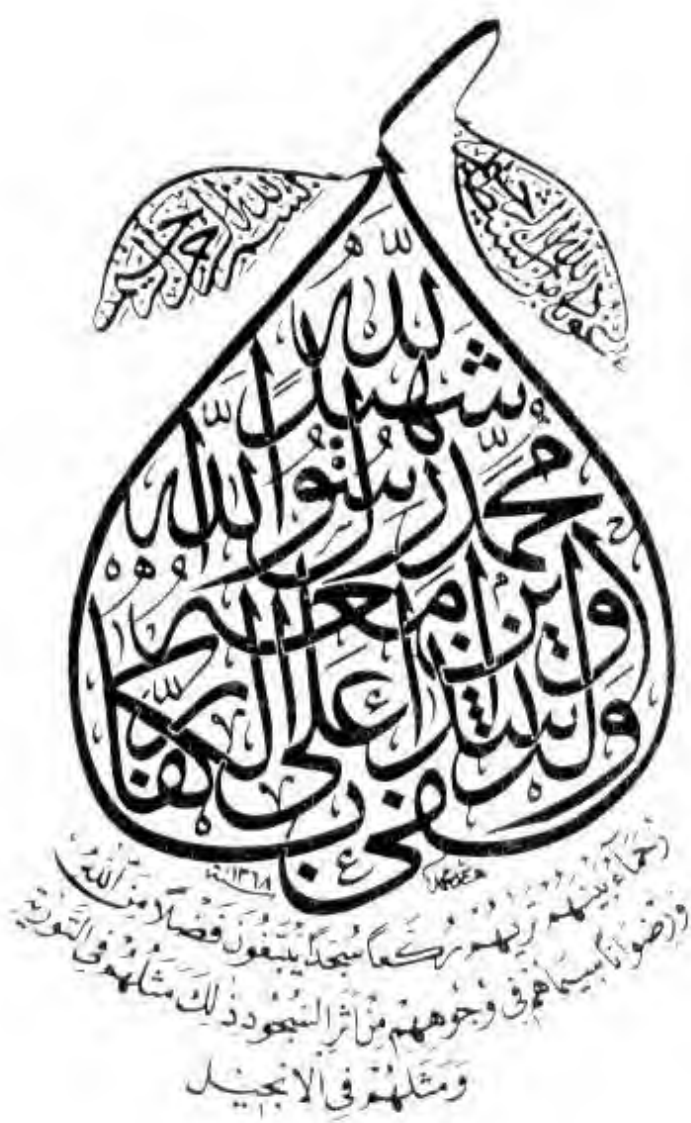 أعوذ بالله من الشيطان الرجيم
بسم الله الرحمن الرحيم
وكفى بالله شهيدًا
محمد رسول الله
والذين معه
أشداء على الكفار
سنة ١٣٦٨
رحماء بينهم تريهم ركعاً سجداً يبتغون فضلا من الله
ورضواناً سيماهم في وجوههم من أثر السجود ذلك مثلهم في التورية
ومثلهم في الانجيل